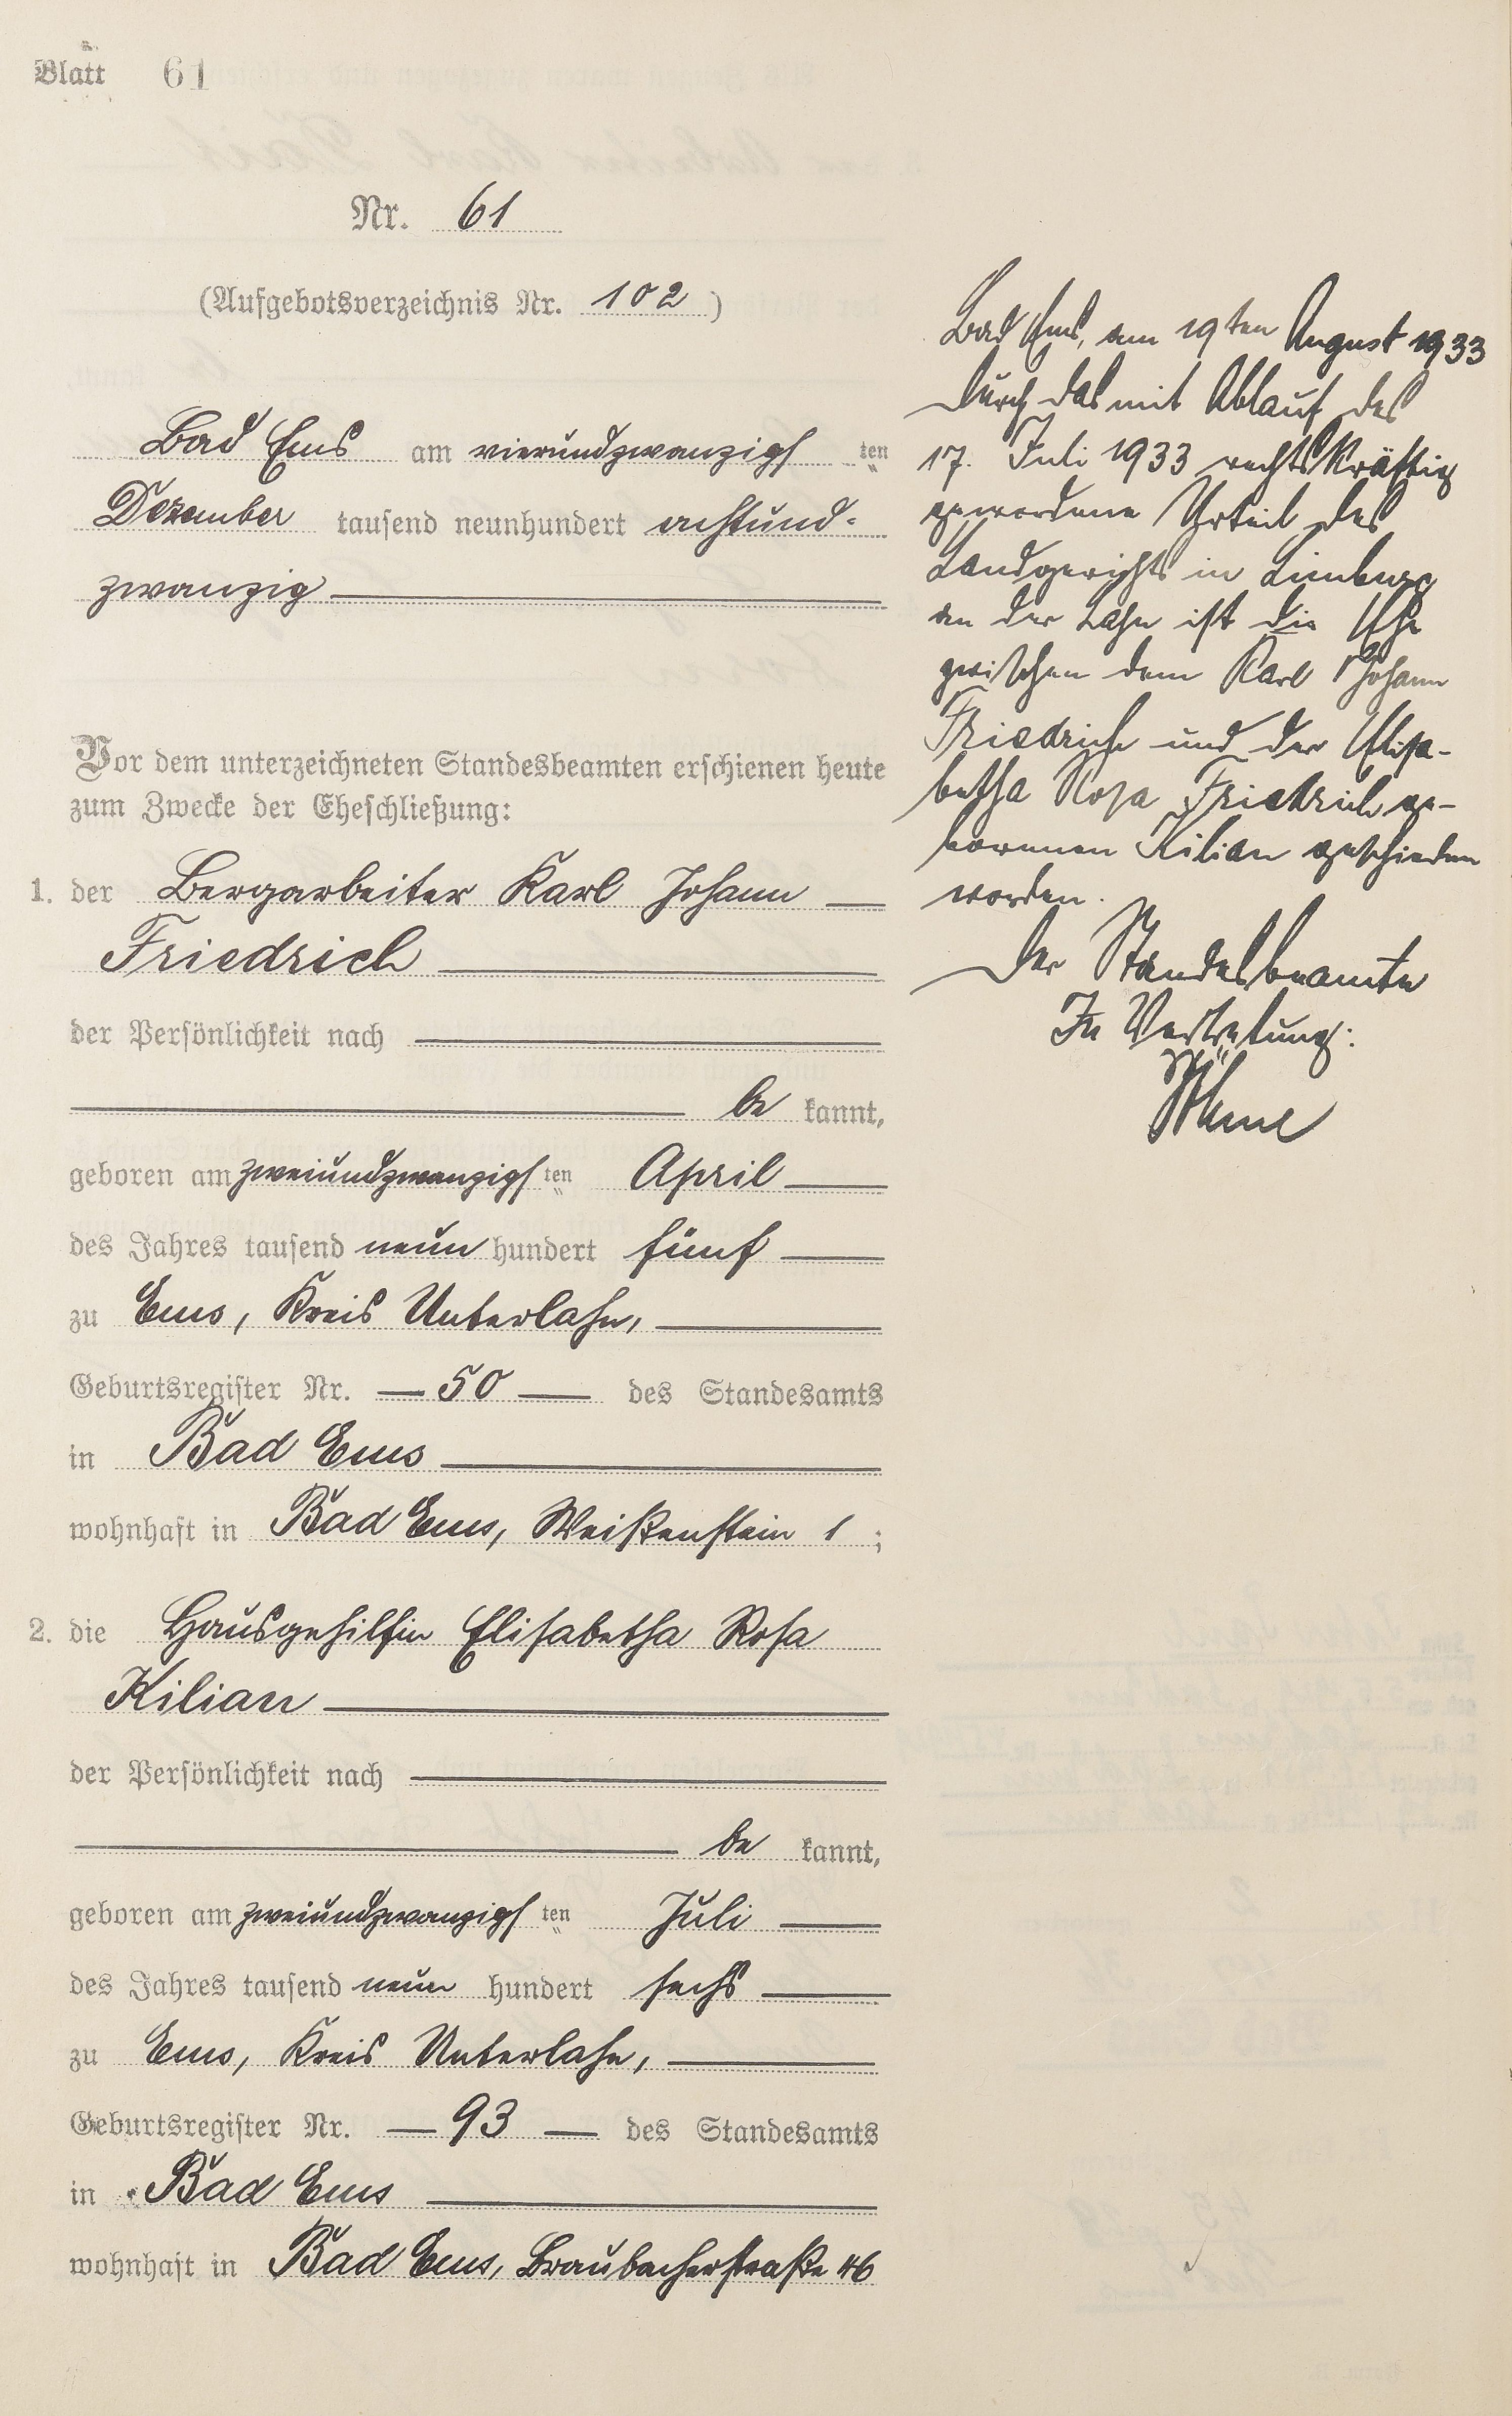 Blatt 61
Nr. 61
(Aufgebotsverzeichnis Nr. 102)
Bad Ems am vierundzwanzigsten
Dezember tausend neunhundert achtund-
zwanzig
Vor dem unterzeichneten Standesbeamten erschienen heute
zum Zwecke der Eheschließung:
1. der Bergarbeiter Karl Johann
Friedrich
der Persönlichkeit nach
be kannt,
geboren am zweiundzwanzigsten April
des Jahres tausend neun hundert fünf
zu Ems, Kreis Unterlahn,
Geburtsregister Nr. 50 des Standesamts
in Bad Ems
wohnhaft in Bad Ems, Weißenstein 1;
2. die Hausgehilfin Elisabetha Rosa
Kilian
der Persönlichkeit nach
be kannt,
geboren am zweiundzwanzigsten Juli
des Jahres tausend neun hundert sechs
zu Ems, Kreis Unterlahn,
Geburtsregister Nr. 93 des Standesamts
in Bad Ems
wohnhaft in Bad Ems, Braubacherstraße 46
Bad Ems, am 19ten August 1933
Durch das mit Ablauf des
17. Juli 1933 rechtskräftig
gewordene Urteil des
Landgerichts in Limburg
an der Lahn ist die Ehe
zwischen dem Karl Johann
Friedrich und der Elisa-
betha Rosa Friedrich ge-
borenen Kilian geschieden
worden.
Der Standesbeamte
In Vertretung: